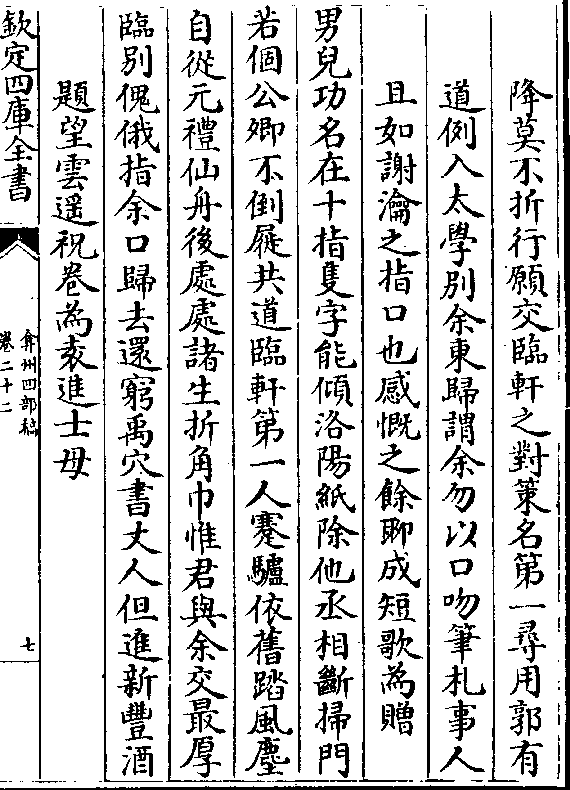 降莫不折行願交臨軒之對策名第一尋用郭有
道例入太學别余東歸謂余勿以口吻筆札事人
且如謝瀹之指口也感慨之餘聊成短歌為贈
男兒功名在十指隻字能傾洛陽紙除他丞相斷掃門
若個公卿不倒屣共道臨軒第一人蹇驢依舊踏風塵
自從元禮仙舟後處處諸生折角巾惟君與余交最厚
臨别傀俄指余口歸去還窮禹穴書丈人但進新豐酒
題望雲遥祝卷為袁進士母
欽定四庫全書
弇州四部稿
卷二十二
七